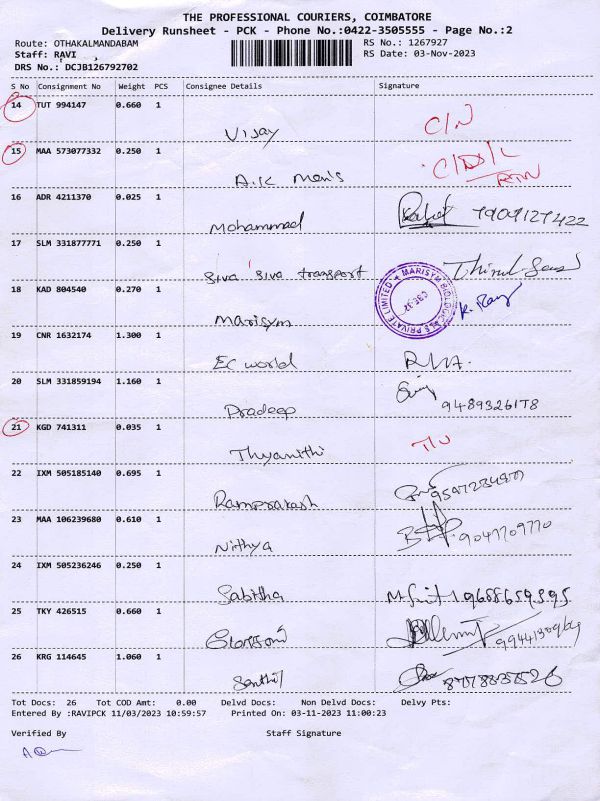 THE PROFESSIONAL COURIERS, COIMBATORE
Delivery Runsheet - PCK - Phone No.:0422-3505555 - Page No.:2
Route: OTHAKALMANDABAM RS No.: 1267927
Staff: RAVI , RS Date: 03-Nov-2023
DRS No.: DCJB126792702
S No Consignment No Weight PCS Consignee Details Signature
14 TUT 994147 0.660 1 Vijay C/N
15 MAA 573077332 0.250 1 A.K Men's
16 ADR 4211370 0.025 1 Mohammad
17 SLM 331877771 0.250 1 Siva Siva transport
18 KAD 804540 0.270 1 Marisym MARISYM BIOLOGICALS PRIVATE LIMITED
19 CNR 1632174 1.300 1 EC world
20 SLM 331859194 1.160 1 Pradeep 9489326178
21 KGD 741311 0.035 1 Thyanithi
22 IXM 505185140 0.695 1 Ramprakash
23 MAA 106239680 0.610 1 Nithya 9047709770
24 IXM 505236246 0.250 1 Sabitha 9688659595
25 TKY 426515 0.660 1
26 KRG 114645 1.060 1 Senthil
Tot Docs: 26 Tot COD Amt: 0.00 Delvd Docs: Non Delvd Docs: Delvy Pts:
Entered By :RAVIPCK 11/03/2023 10:59:57 Printed On: 03-11-2023 11:00:23
Verified By Staff Signature